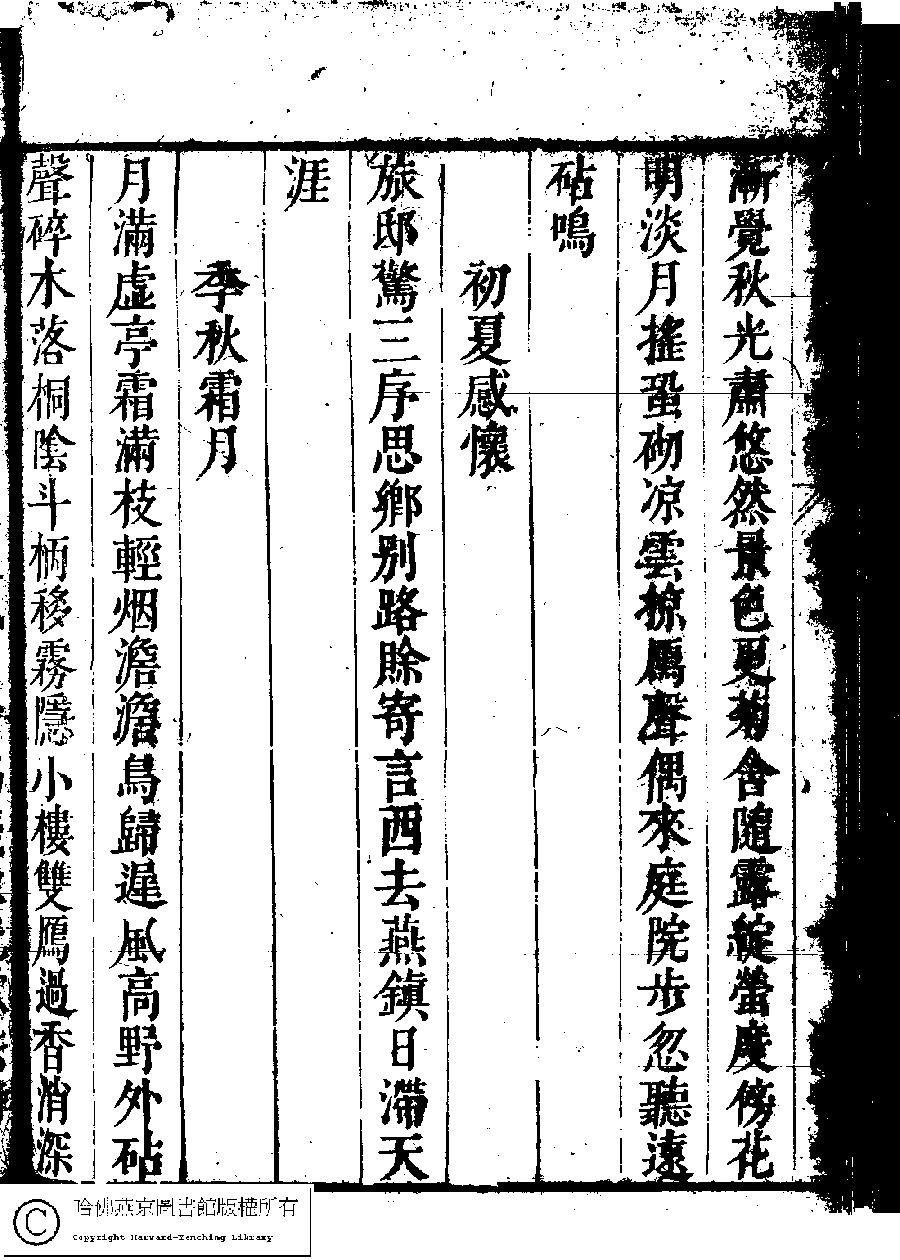 漸覺秋光肅悠然景色更菊舍隨露綻螢度傍花
明淡月搖蛩砌凉雲掠鴈聲偶來庭院步忽聽遠
砧鳴
初夏感懷
旅邸驚三序思鄉别路賒寄言西去燕鎮日滯天
涯
季秋霜月
月滿虛亭霜滿枝輕烟澹澹鳥歸遲風高野外砧
聲碎木落桐陰斗柄移霧隱小樓雙鴈過香消深
哈佛燕京圖書館版權所有
Copyright Harvard-Yenching Library